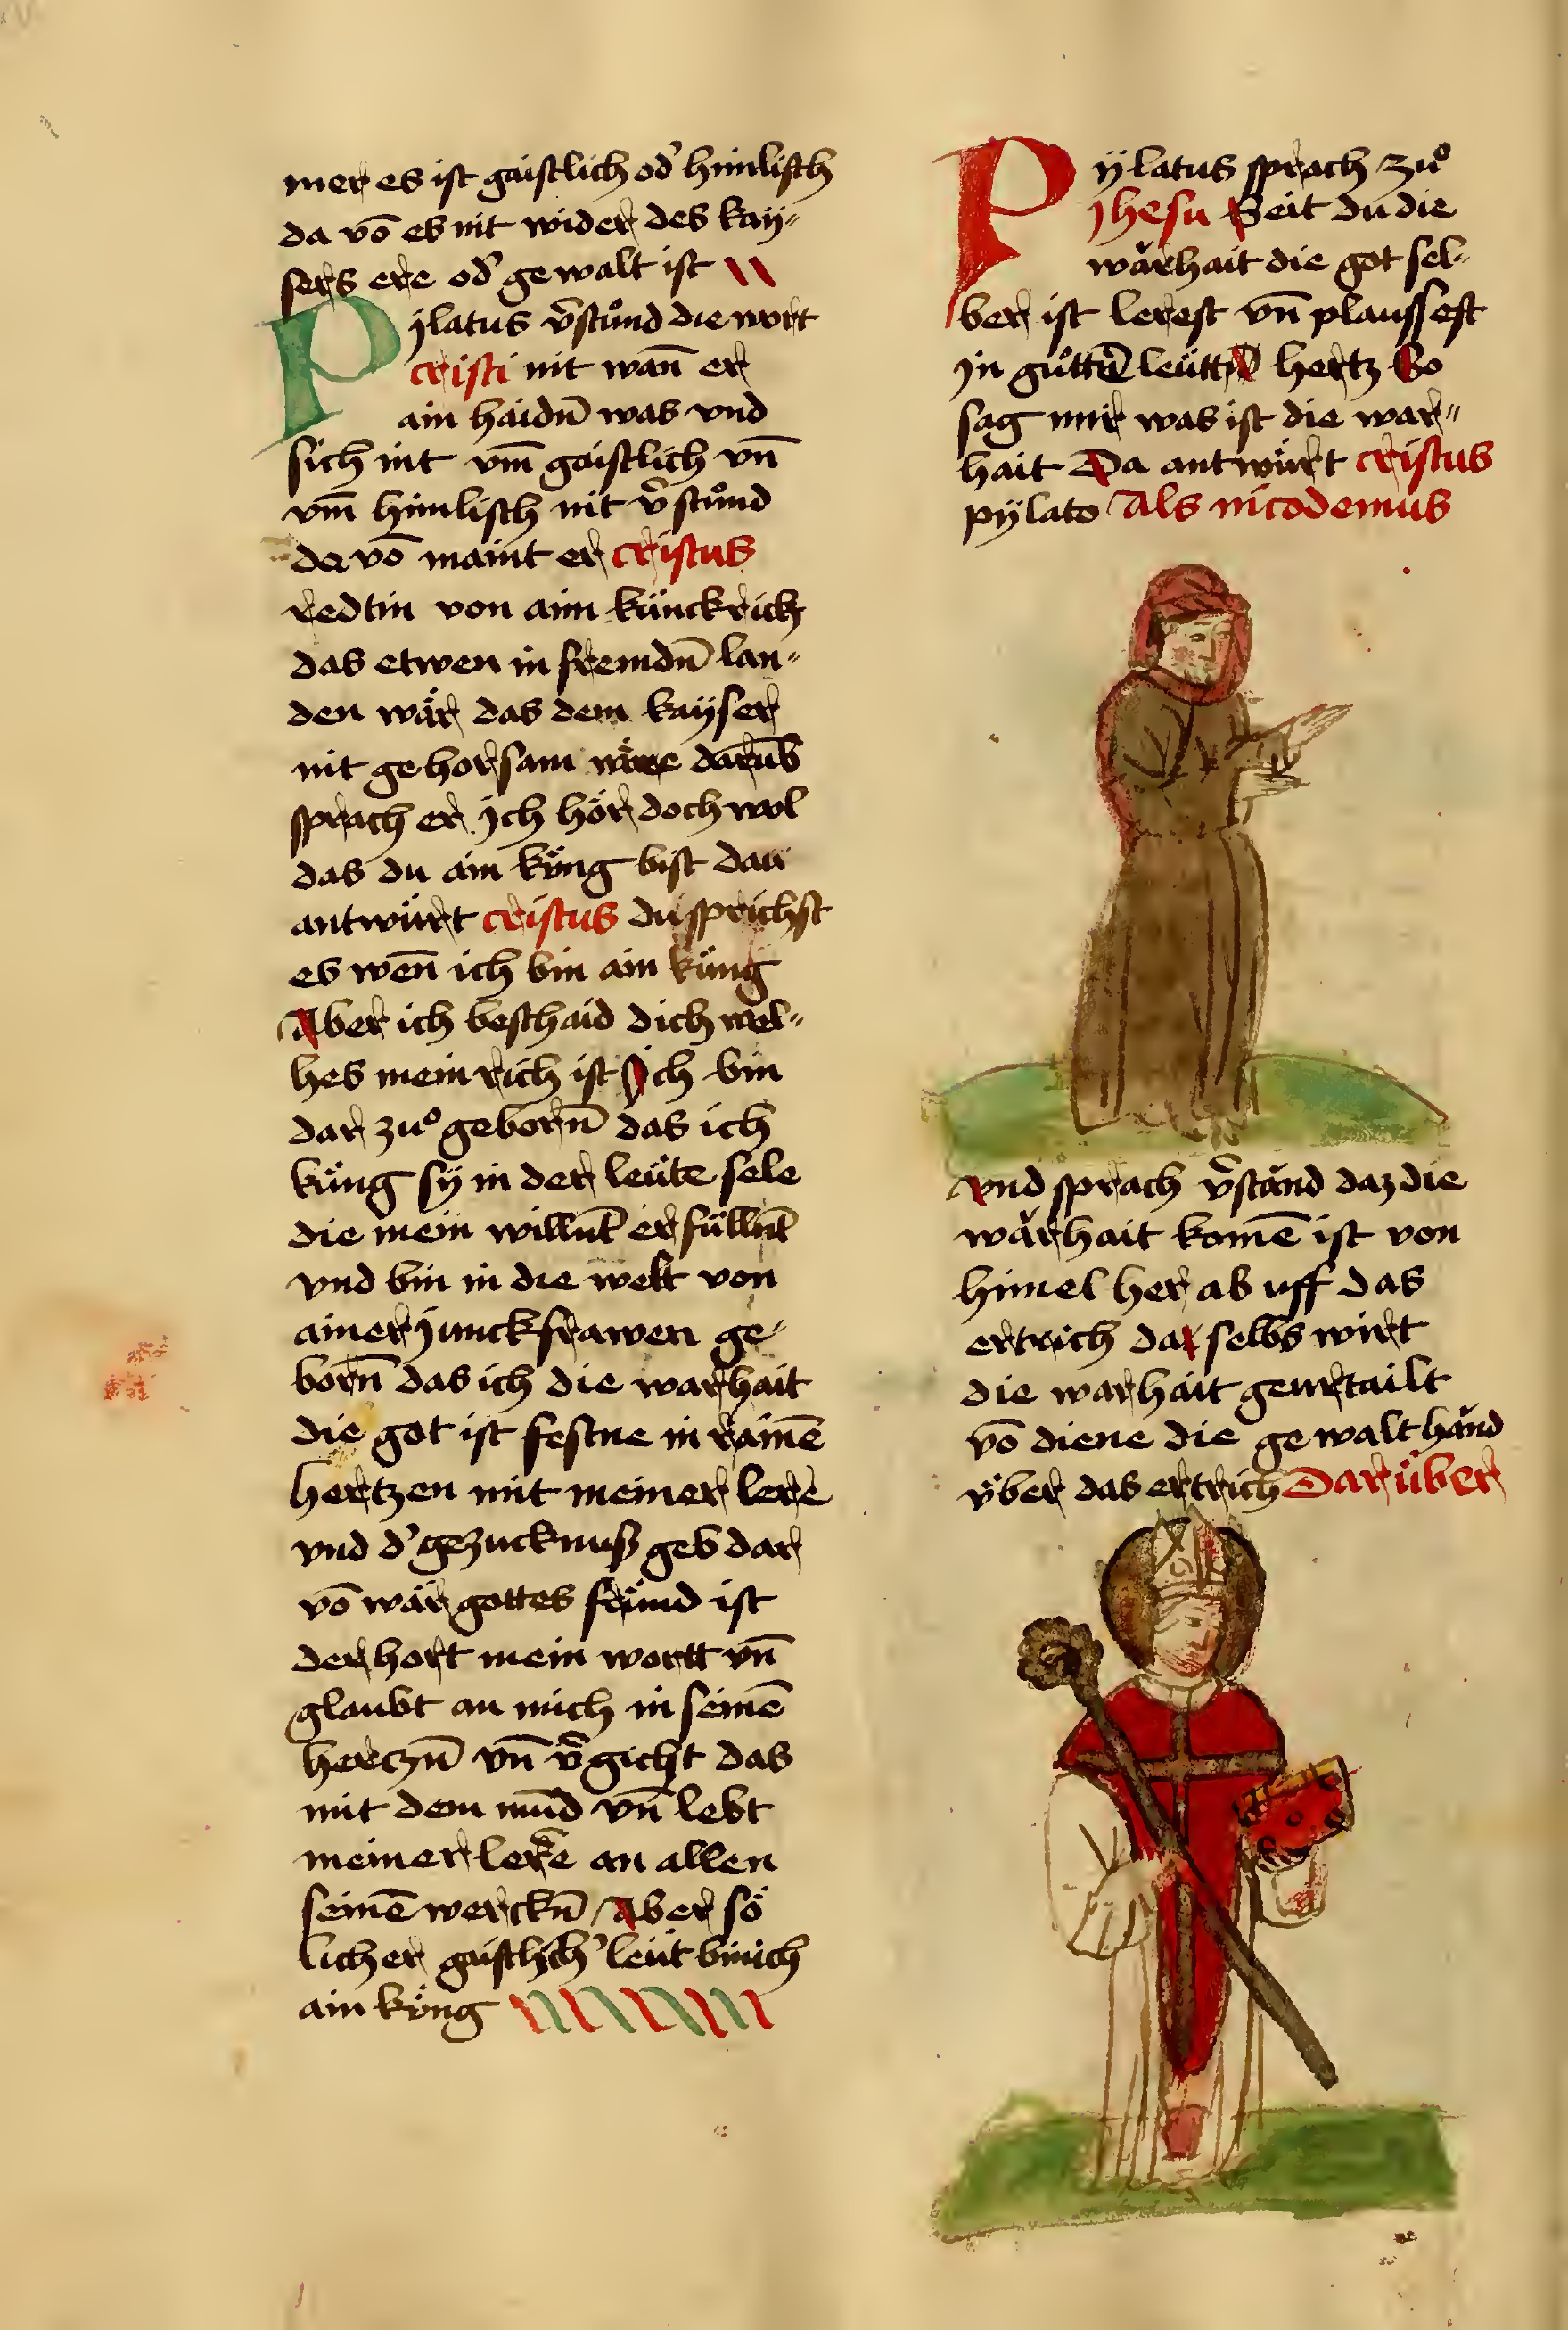 mer es ist gaistlich od' himlisch
da vō es nit wider des kaÿ-
sers ere od' gewalt ist
Pilatus v̄stůnd die wort
cristi nit wañ er
ain haidn̄ was vnd
sich nit vm̄ gaistlich vn̄
vm̄ himlisch nit v̄stůnd
da vō maint er cristus
redtin von aim künckrich
das etwen in fremdn̄ lan-
den wär das dem kaÿser
nit gehorsam wäre darūb
sprach er jch hör doch wol
das du ain küng bist
antwürt cristus du sprichst
es wen̄ ich bin ain küng
Aber ich beschaid dich wel-
hes mein rich ist Jch bin
dar zů geborn̄ das ich
küng sÿ in der leüte sele
die mein willn̄t erfülln̄t
vnd bin in die welt von
ainer junckfrawen ge-
born̄ das ich die warhait
die got ist festne in rainē
hertzen mit meiner lere
vnd d' gezucknuß geb dar
vō wär gottes fründ ist
der hort mein wortt vn̄
glaubt an mich in seinē
herczn̄ vn̄ v̄gicht das
mit dem mūd vn̄ lebt
meiner lerē an allen
seinē werckn̄ Aber sö
licher gaistlich' leüt bin ich
ain küng
Pÿlatus sprach zů
Jhesu Seit du die
wärhait die got sel-
ber ist lerest vn̄ plaussest
jn gůttē leüttn̄ hertz So
sag mir was ist die war-
hait Da antwürt cristus
pÿlato Als nicodemus
vnd sprach v̄ständ daz die
wärhait komē ist von
himel her ab uff das
ertrich da selbs wirt
die warhait geurtailt
vō diene die gewalt händ
über das ertrich Darüber